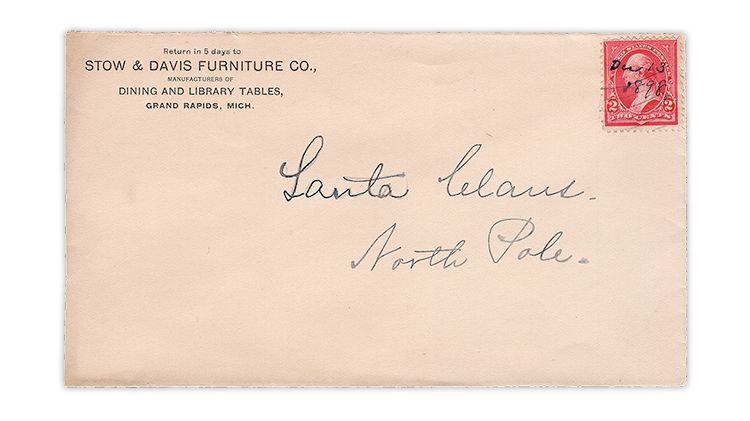 Return in 5 days to
STOW & DAVIS FURNITURE CO.,
MANUFACTURERS OF
DINING AND LIBRARY TABLES,
GRAND RAPIDS, MICH.
Dec. 13
1898
2 2
TWO CENTS
Santa Claus.
North Pole.